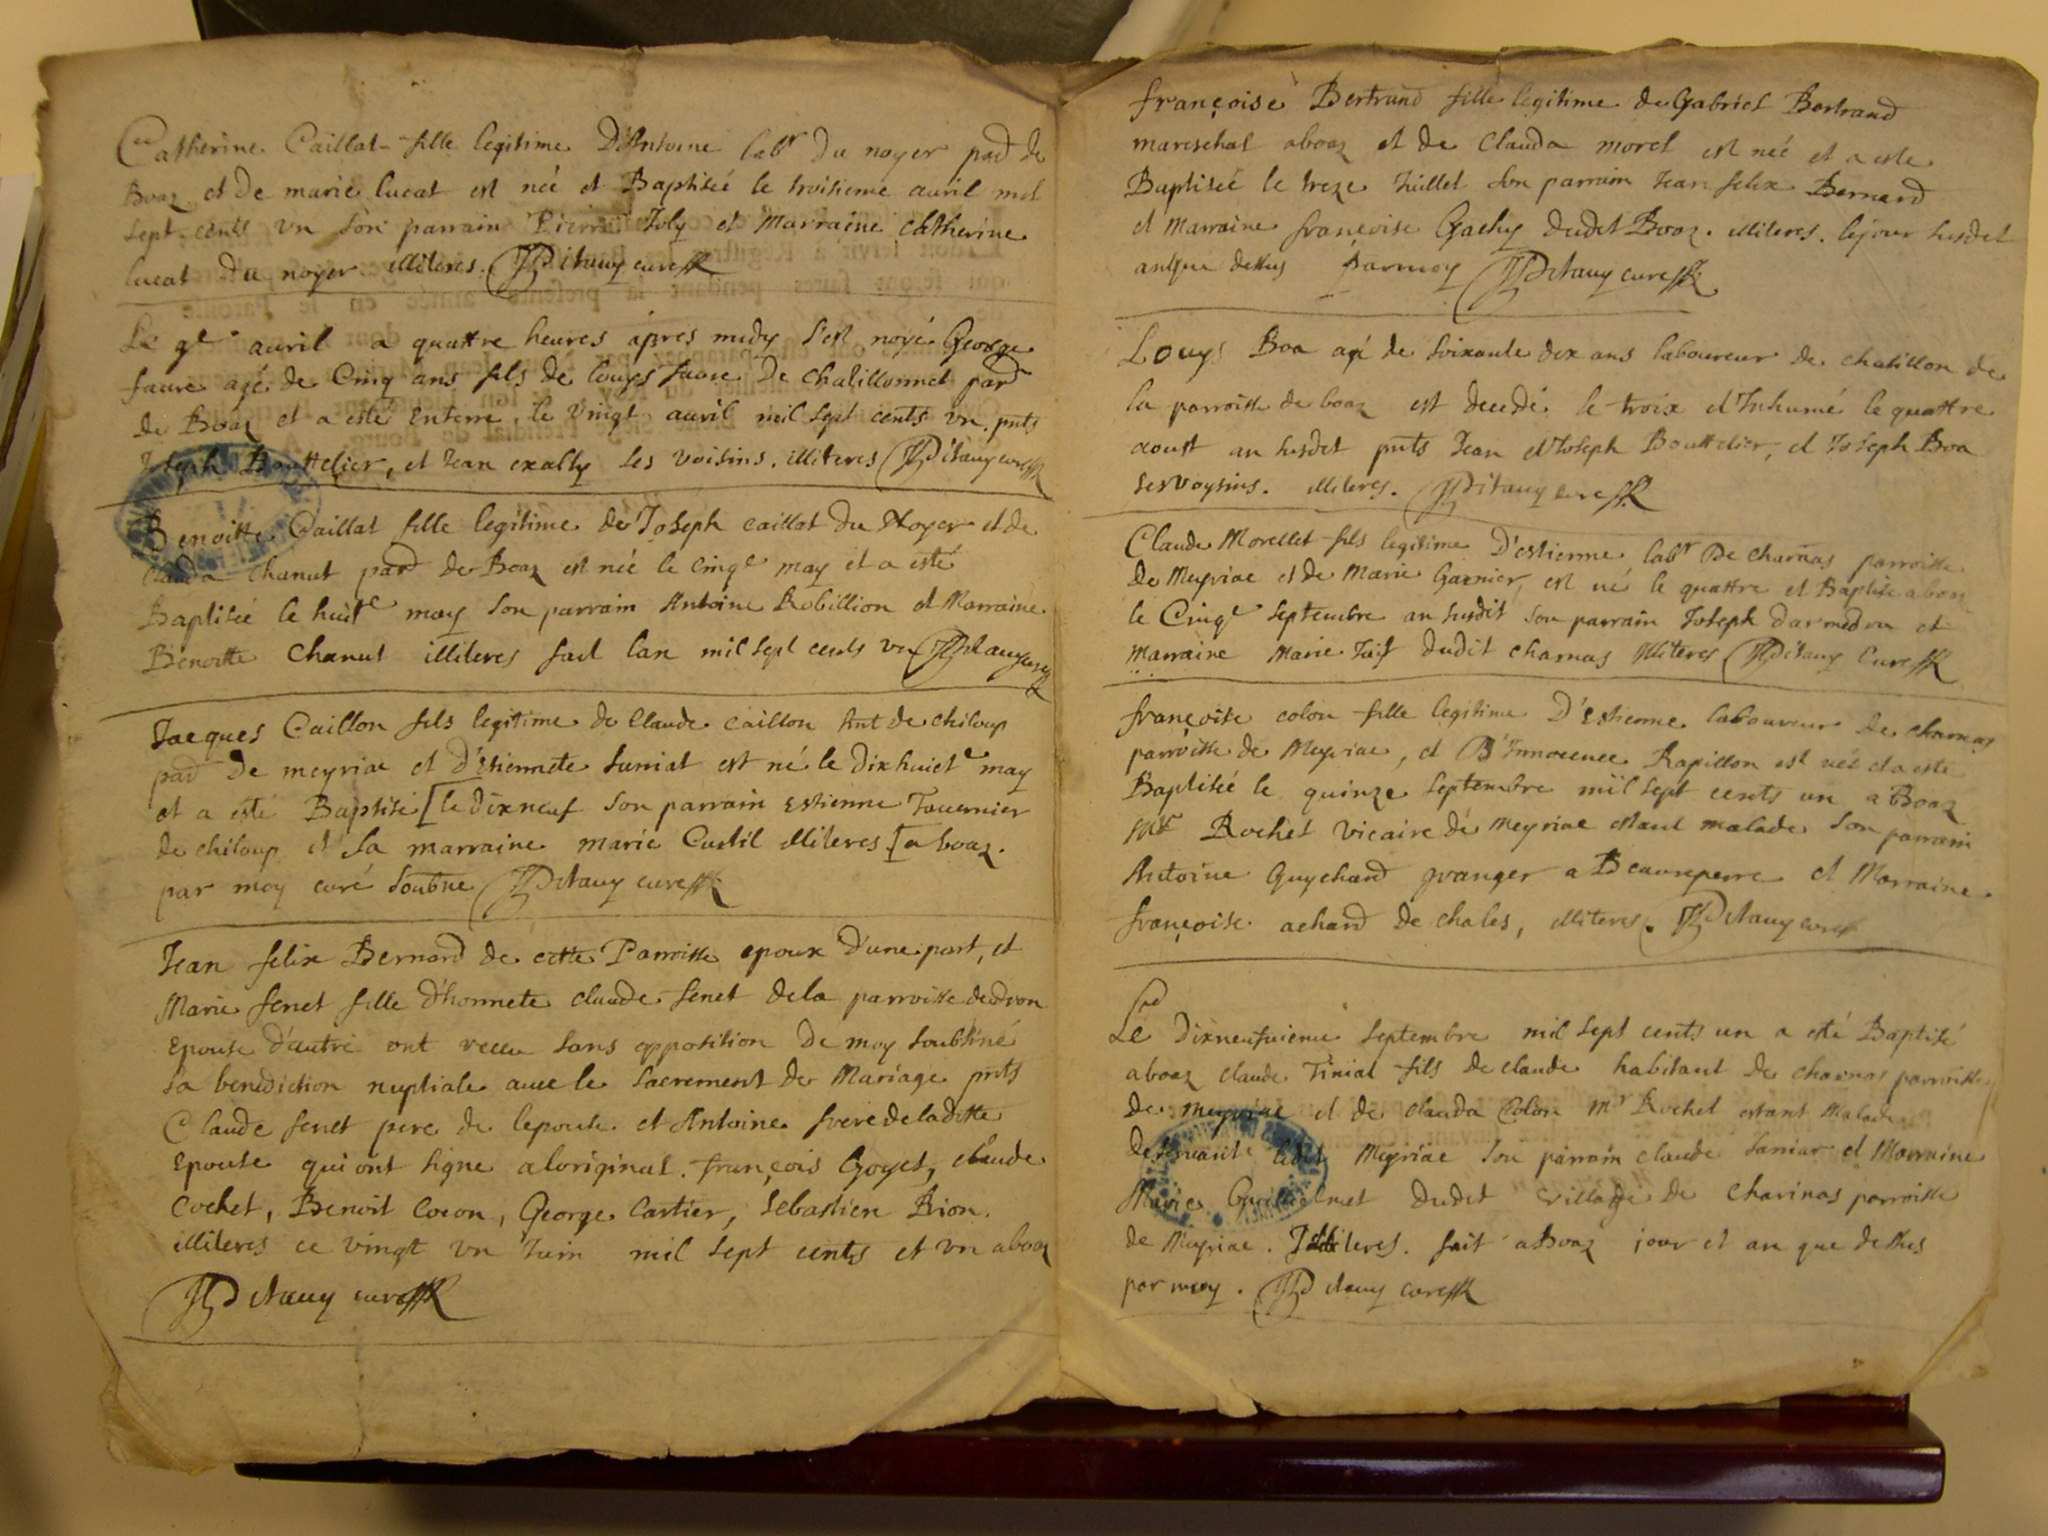 Catherine Caillat fille legitime D'Antoine lab^r du noyer par^d de
Boaz et de marie lucat est neé et Baptiseé le troisieme auril mil
sept cents vn son parrain Pierre Joly et Marraine Catherine
lucat du noyer illiteres. Ditauy cure
Le 9^e auril a quattre heures apres midy s'est noyé George
faure agé de Cinq ans fils de louys faure De chatillonnet par^d
de Boaz et a esté Enterre le vingt auril mil sept cents vn pnts
Joseph Bouttelier, et Jean exally ses voisins. illiteres Ditauy cure
Benoitte Caillat fille legitime de Joseph caillat du Noyer et de
clauda chanut par^d de Boaz est neé le cinq^e may et a esté
Baptiseé le huit^e may son parrain Antoine Robillion et Marraine
Benoitte Chanut illiteres fait lan mil sept cents vn Ditauy cure
Jacques Caillon fils legitime de Claude caillon de chiloup
par^d De meyriac et d'Estiennete Suniat est né le Dix huict^e may
et a esté Baptisé [le dixneuf son parrain Estienne Tavernier
de chiloup et sa marraine marie Curtil illiteres [a boaz.
par moy curé soubne Ditauy cure
Jean felix Bernard de cette Parroisse epoux d'une part, et
Marie fenet fille d'honnete claude fenet dela parroisse dedron
Epouse d'autre ont receu sans opposition De moy soubsiné
la benediction nuptiale auec le sacrement de Mariage pnts
Claude fenet pere de lepouse et Antoine frere deladitte
Epouse qui ont signe aloriginal. françois Goyet, claude
Cochet, Benoit Cocon, George Cartier, Sebastien Brion.
illiteres ce vingt vn Juin mil sept cents et vn aboaz
Ditauy cure
françoise Bertrand fille legitime de Gabriel Bertrand
mareschal aboaz et de Clauda morel est neé et a este
Baptiseé le treze Juillet son parrain Jean felix Bernard
et Marraine françoise Gachy dudit Boaz. illiteres. le jour susdit
anque dessus parmoy Ditauy cure
Louys Boa agé de soixante dix ans laboureur de chatillon de
la parroisse de boaz est decedé le troix et Inhumé le quattre
aoust an susdit pnts Jean et Joseph Bouttelier, et Joseph Boa
ses voysins. illiteres. Ditauy cure
Claude Morellet fils legitime D'estienne lab^r De charnas parroisse
De Meyriac et de Marie Garnier, est né le quattre et Baptise aboaz
le Cinq^e septembre an susdit son parrain Joseph darmedon et
marraine Marie Juif dudit charnas Illiteres Ditauy Cure
françoise colon fille legitime D'Estienne laboureur de charnas
parroisse de Meyriac, et D'Innocence Rapillon est neé et a este
Baptiseé le quinze septembre mil sept cents un a Boaz
M^r Rochet vicaire de meyriac estant malade son parrain
Antoine Guychard granger a Beaureperre et Marraine
françoise achard de chales, illiteres. Ditauy cure
Le Dixneufuieme septembre mil sept cents un a esté Baptisé
aboaz claude Tiniat fils de claude habitant de charnas parroisse
de meyriac et de clauda Colon M^r Rochet estant Malade
Deseruant ledit Meyriac son parrain claude Janiar et Marraine
Marie Guillelmet dudit village de Charinas parroisse
de Meyriac. Illiteres. fait aBoaz jour et an que dessus
par moy. Ditauy cure